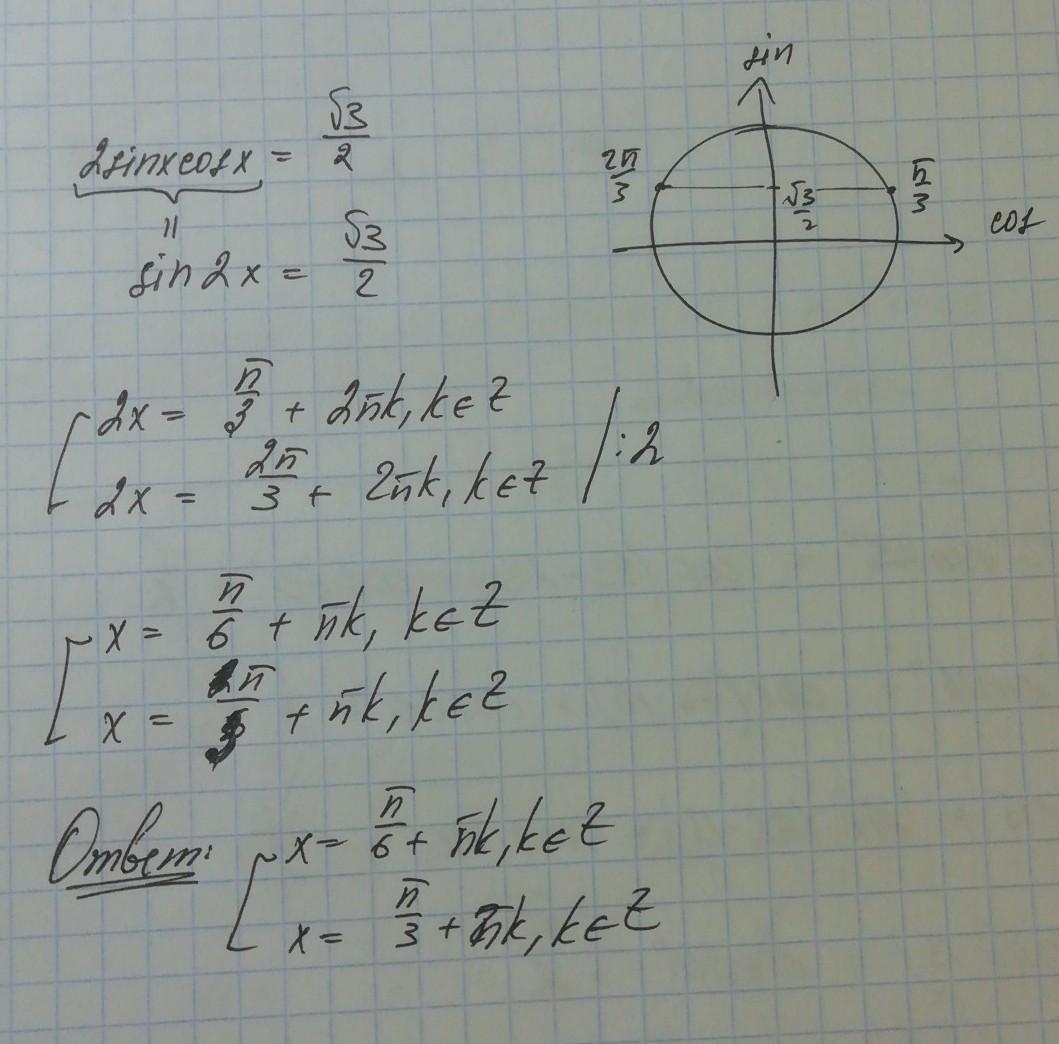 2sinxcosx = √3/2
"
sin2x = √3/2
sin
2π/3
π/3
√3/2
cos
[ 2x = π/3 + 2πk, k∈Z
2x = 2π/3 + 2πk, k∈Z / :2
[ x = π/6 + πk, k∈Z
x = π/3 + πk, k∈Z
Ответ: [ x = π/6 + πk, k∈Z
x = π/3 + πk, k∈Z